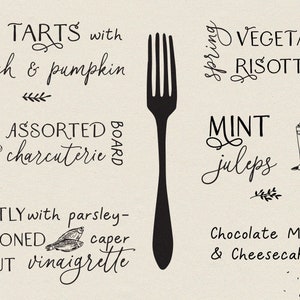 TARTS with
& pumpkin
ASSORTED BOARD
charcuterie
with parsley-
caper
vinaigrette
spring VEGETA
RISOTT
MINT
juleps
Chocolate M
& Cheesecak